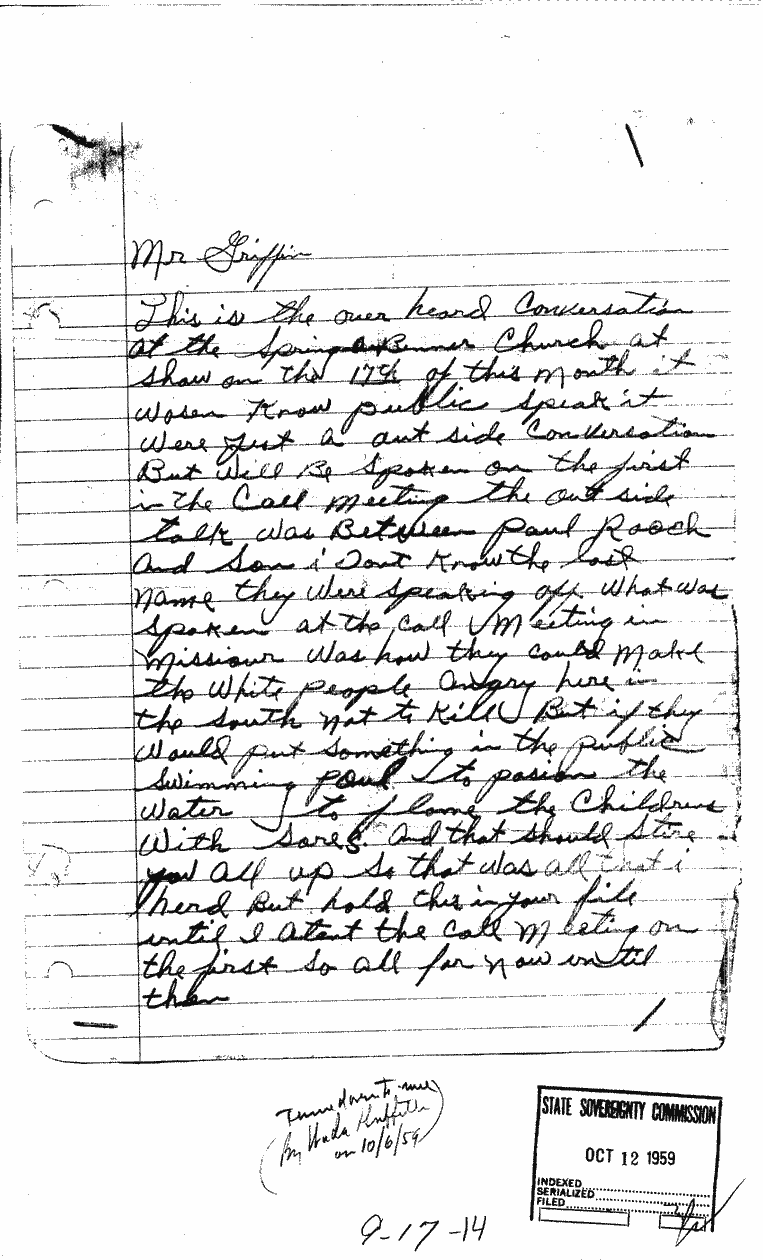 Mr Griffin
This is the over heard Conversation
at the Spring Church at
Shaw on the 17th of this Month it
wosen Know public Speak it
were just a out side Conversation
But Will Be Spoken on the first
in the Call meeting the out side
talk was Between Paul Rooch
And Son i Dont Know the last
name they were speaking off. What was
Spoken at the Call Meeting in
Missiour was how they could Make
the White people Angry here in
the South not to Kill But if they
Would put Something in the public
Swimming poul to posion the
Water to flame the Childrens
With Sores. And that should Stire
you all up So that was all that i
herd But hold this in your file
until I atent the Call Meeting on
the first So all for now until
then
down to me
By
on 10/6/59
STATE SOVEREIGNTY COMMISSION
OCT 12 1959
INDEXED
SERIALIZED
FILED
9-17-14